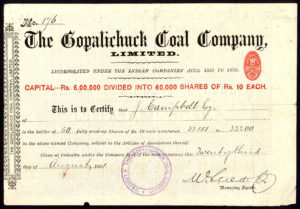 No. 176
The Gopalichuck Coal Company,
LIMITED.
INCORPORATED UNDER THE INDIAN COMPANIES ACTS, 1882 TO 1895.
CAPITAL—Rs. 6,00,000 DIVIDED INTO 60,000 SHARES OF Rs. 10 EACH.
This is to Certify that J. Campbell Esq.
is the holder of 50 fully paid-up Shares of Rs. 10 each numbered
in the above named Company, subject to the Articles of Association thereof.
Given at Calcutta under the Common Seal of the said Company this Twenty third
day of August
Managing Agents.